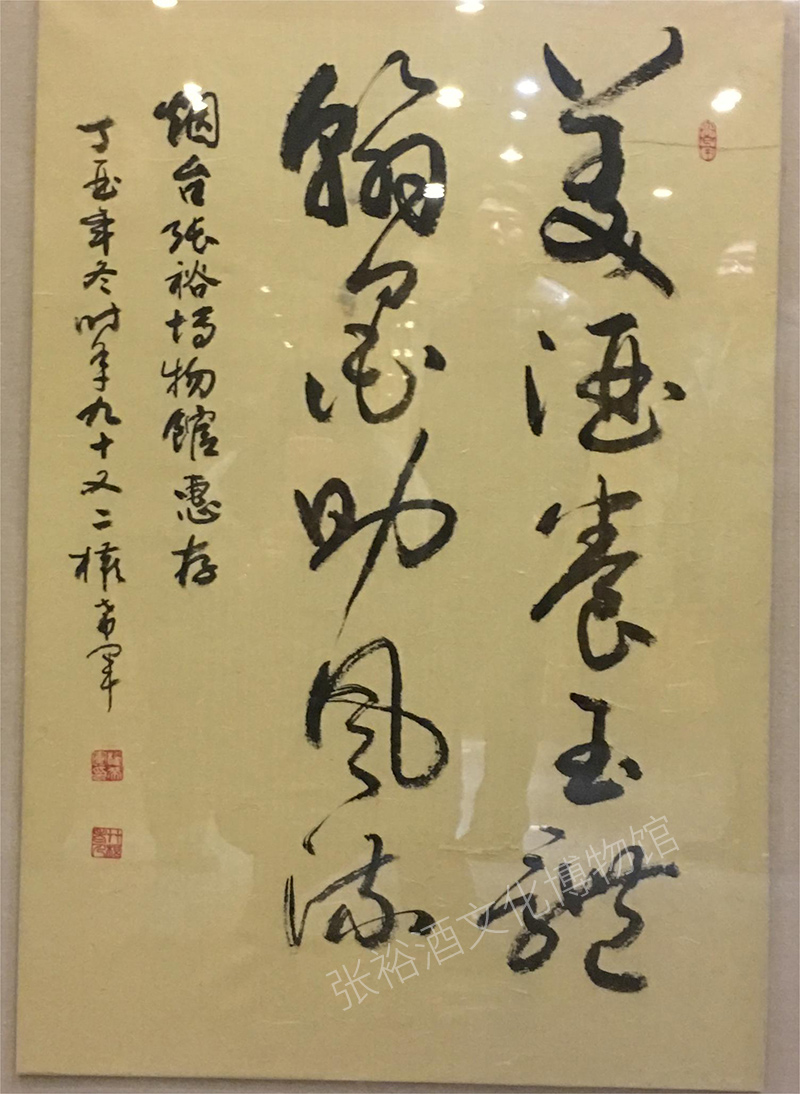 美酒養玉體
翰墨助風流
烟台張裕博物館惠存
丁酉年冬时年九十又二權希軍
张裕酒文化博物馆